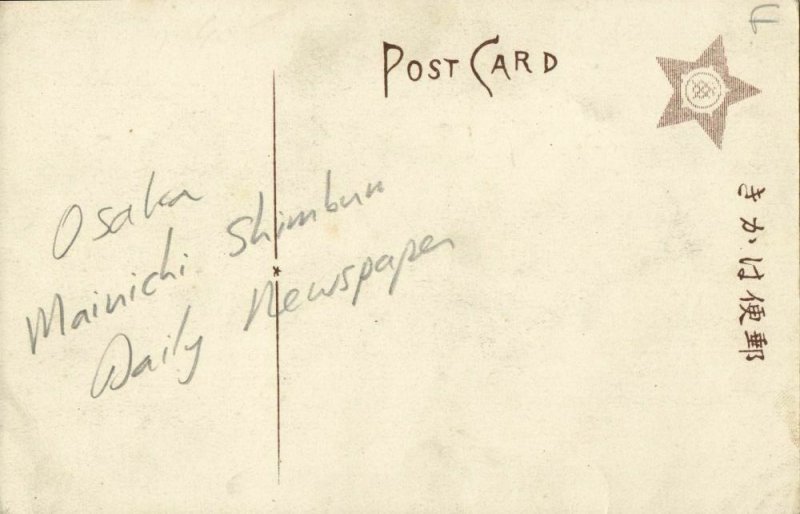 POST CARD
郵便はかき
Osaka
Mainichi Shimbun
Daily Newspaper